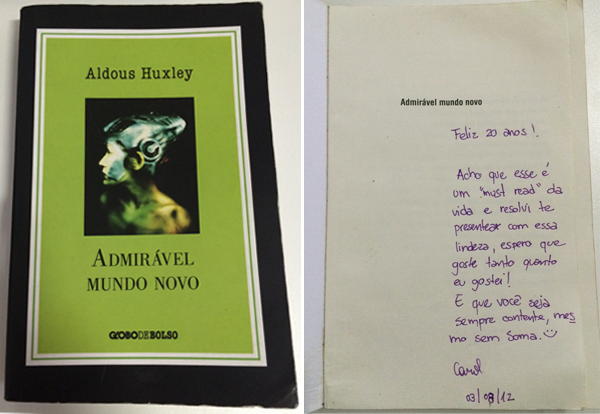 Aldous Huxley
ADMIRÁVEL
MUNDO NOVO
GLOBODEBOLSO
Admirável mundo novo
Feliz 20 anos!
Acho que esse é
um "must read" da
vida e resolvi te
presentear com essa
lindeza, espero que
goste tanto quanto
eu gostei!
E que você seja
sempre contente, mes
mo sem Soma.
Carol
03/08/12